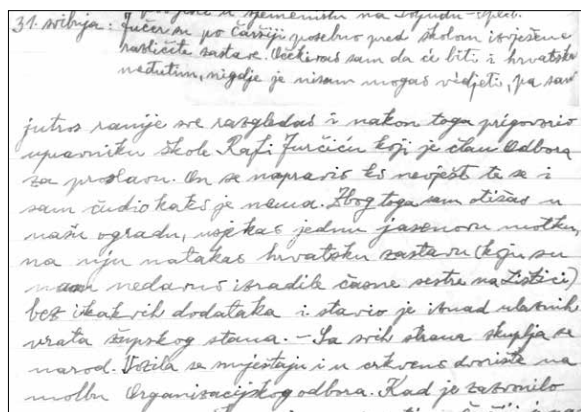 sjemeništu na
31. svibnja: Jučer su po čaršiji posebno pred školom izvješene
različite zastave. Očekivao sam da će biti i hrvatska
međutim, nigdje je nisam mogao vidjeti, pa sam
jutros ranije sve razgledao i nakon toga prigovorio
upravniku škole Rafi Jurčiću koji je član Odbora
za proslavu. On se napravio ko nevješt te se i
sam čudio kako je nema. Zbog toga sam otišao u
našu ogradu, usjekao jednu jasenovu motku,
na nju natakao hrvatsku zastavu (koju su
nam nedavno izradile časne sestre na Lištici)
bez ikakvih dodataka i stavio je iznad ulaznih
vrata župskog stana. – Sa svih strana skuplja se
narod. Vozila se smještaju i u crkveno dvorište na
molbu Organizacijskog odbora. Kad je zazvonilo